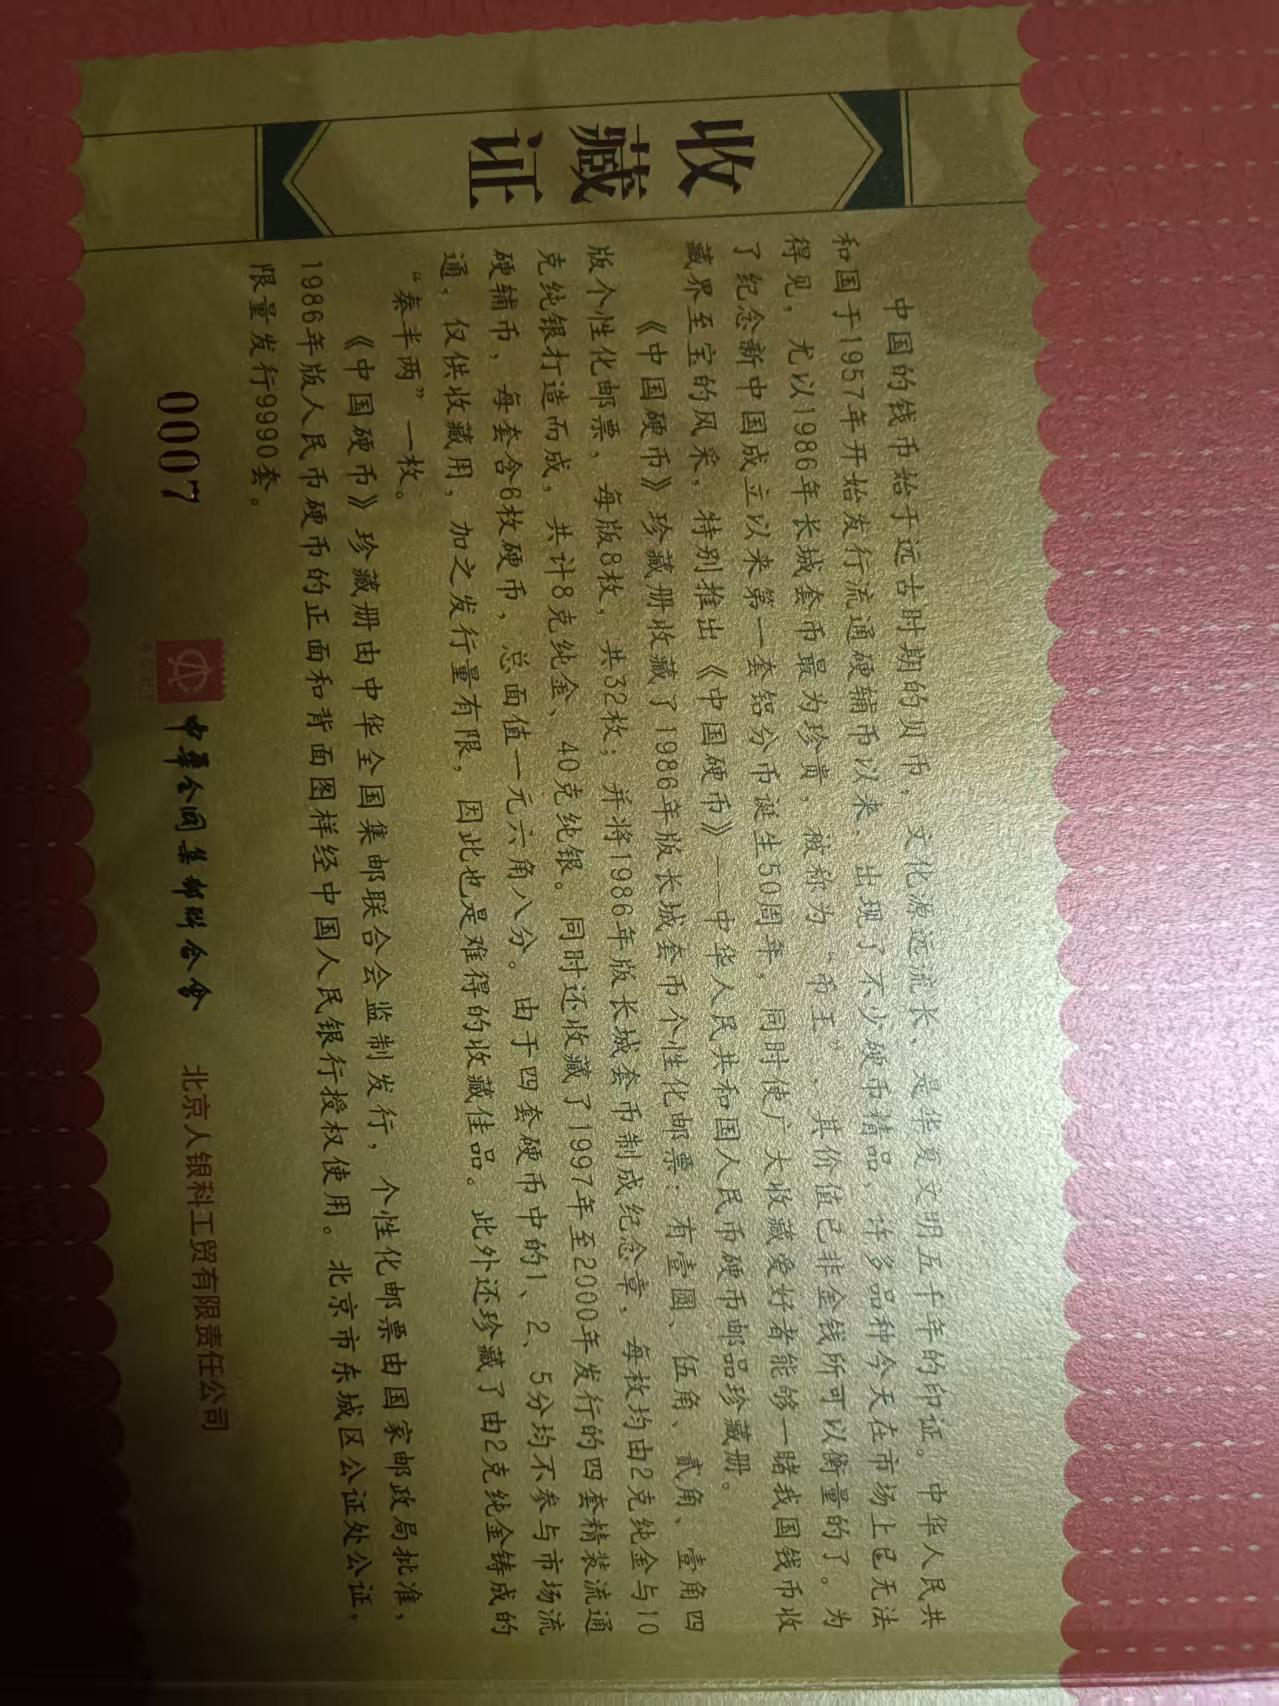 收藏证
中国的钱币始于远古时期的贝币，文化源远流长，是华夏文明五千年的印证。中华人民共
和国于1957年开始发行流通硬辅币以来，出现了不少硬币精品，许多品种今天在市场上已无法
得见，尤以1986年长城套币最为珍贵，被称为“币王”，其价值已非金钱所可以衡量的了。为
了纪念新中国成立以来第一套铝分币诞生50周年，同时使广大收藏爱好者能够一睹我国钱币收
藏界至宝的风采，特别推出《中国硬币》——中华人民共和国人民币硬币邮品珍藏册。
《中国硬币》珍藏册收藏了1986年版长城套币个性化邮票：有壹圆、伍角、贰角、壹角四
版个性化邮票，每版8枚，共32枚；并将1986年版长城套币制成纪念章，每枚均由2克纯金与10
克纯银打造而成，共计8克纯金、40克纯银。同时还收藏了1997年至2000年发行的四套精装流通
硬辅币，每套含6枚硬币，总面值一元六角八分。由于四套硬币中的1、2、5分均不参与市场流
通，仅供收藏用，加之发行量有限，因此也是难得的收藏佳品。此外还珍藏了由2克纯金铸成的
“秦半两”一枚。
《中国硬币》珍藏册由中华全国集邮联合会监制发行，个性化邮票由国家邮政局批准，
1986年版人民币硬币的正面和背面图样经中国人民银行授权使用。北京市东城区公证处公证，
限量发行9990套。
0007 中华全国集邮联合会 北京人银科工贸有限责任公司